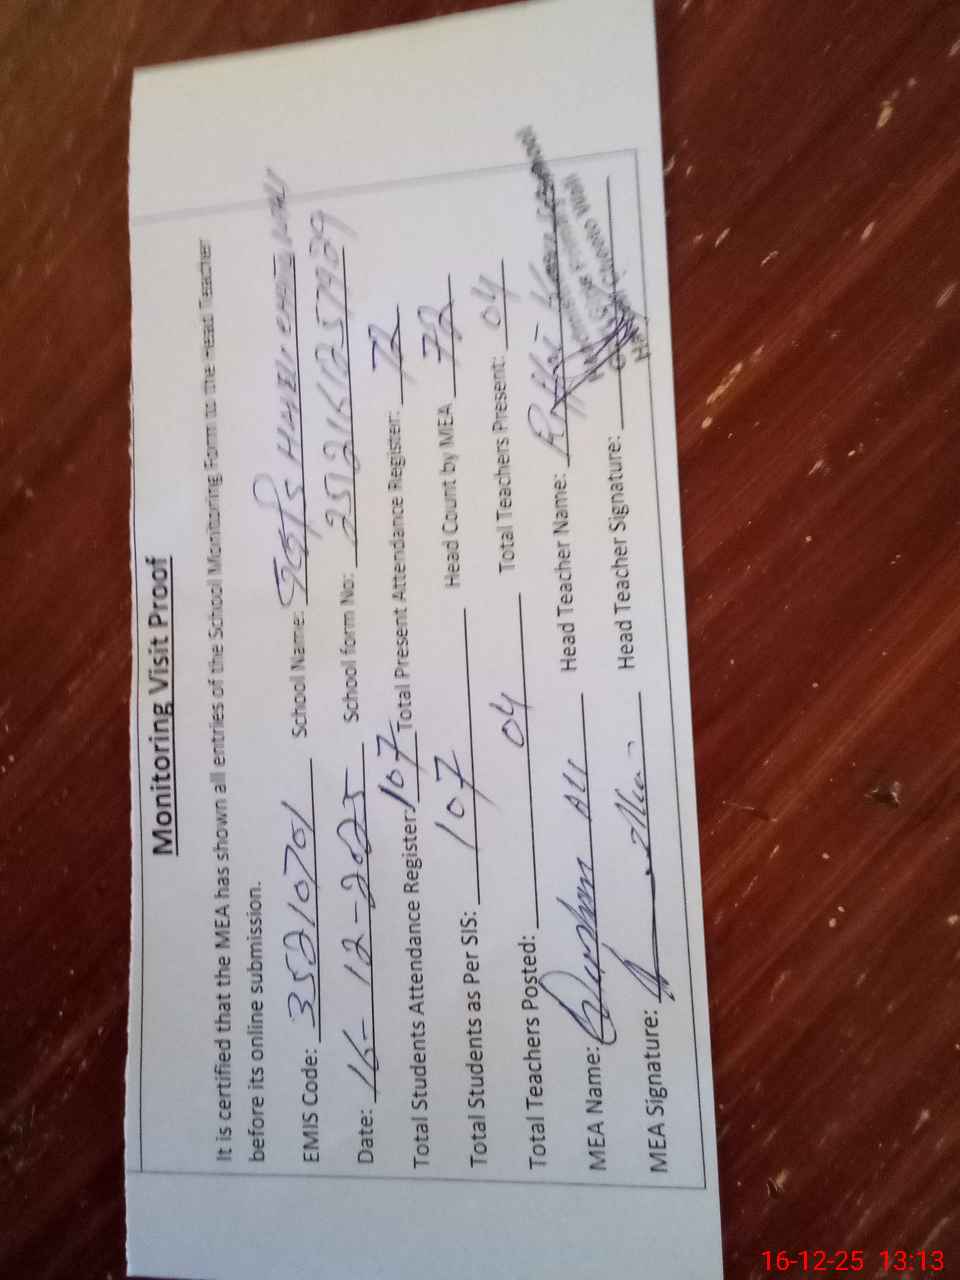 Monitoring Visit Proof
It is certified that the MEA has shown all entries of the School Monitoring Form to the Head Teacher
before its online submission.
EMIS Code: 35210701 School Name:
Date: 16-12-2025 School form No:
Total Students Attendance Register: 107 Total Present Attendance Register: 72
Total Students as Per SIS: 107 Head Count by MEA 72
Total Teachers Posted: 04 Total Teachers Present: 04
MEA Name: Ali Head Teacher Name:
MEA Signature: Head Teacher Signature:
16-12-25 13:13